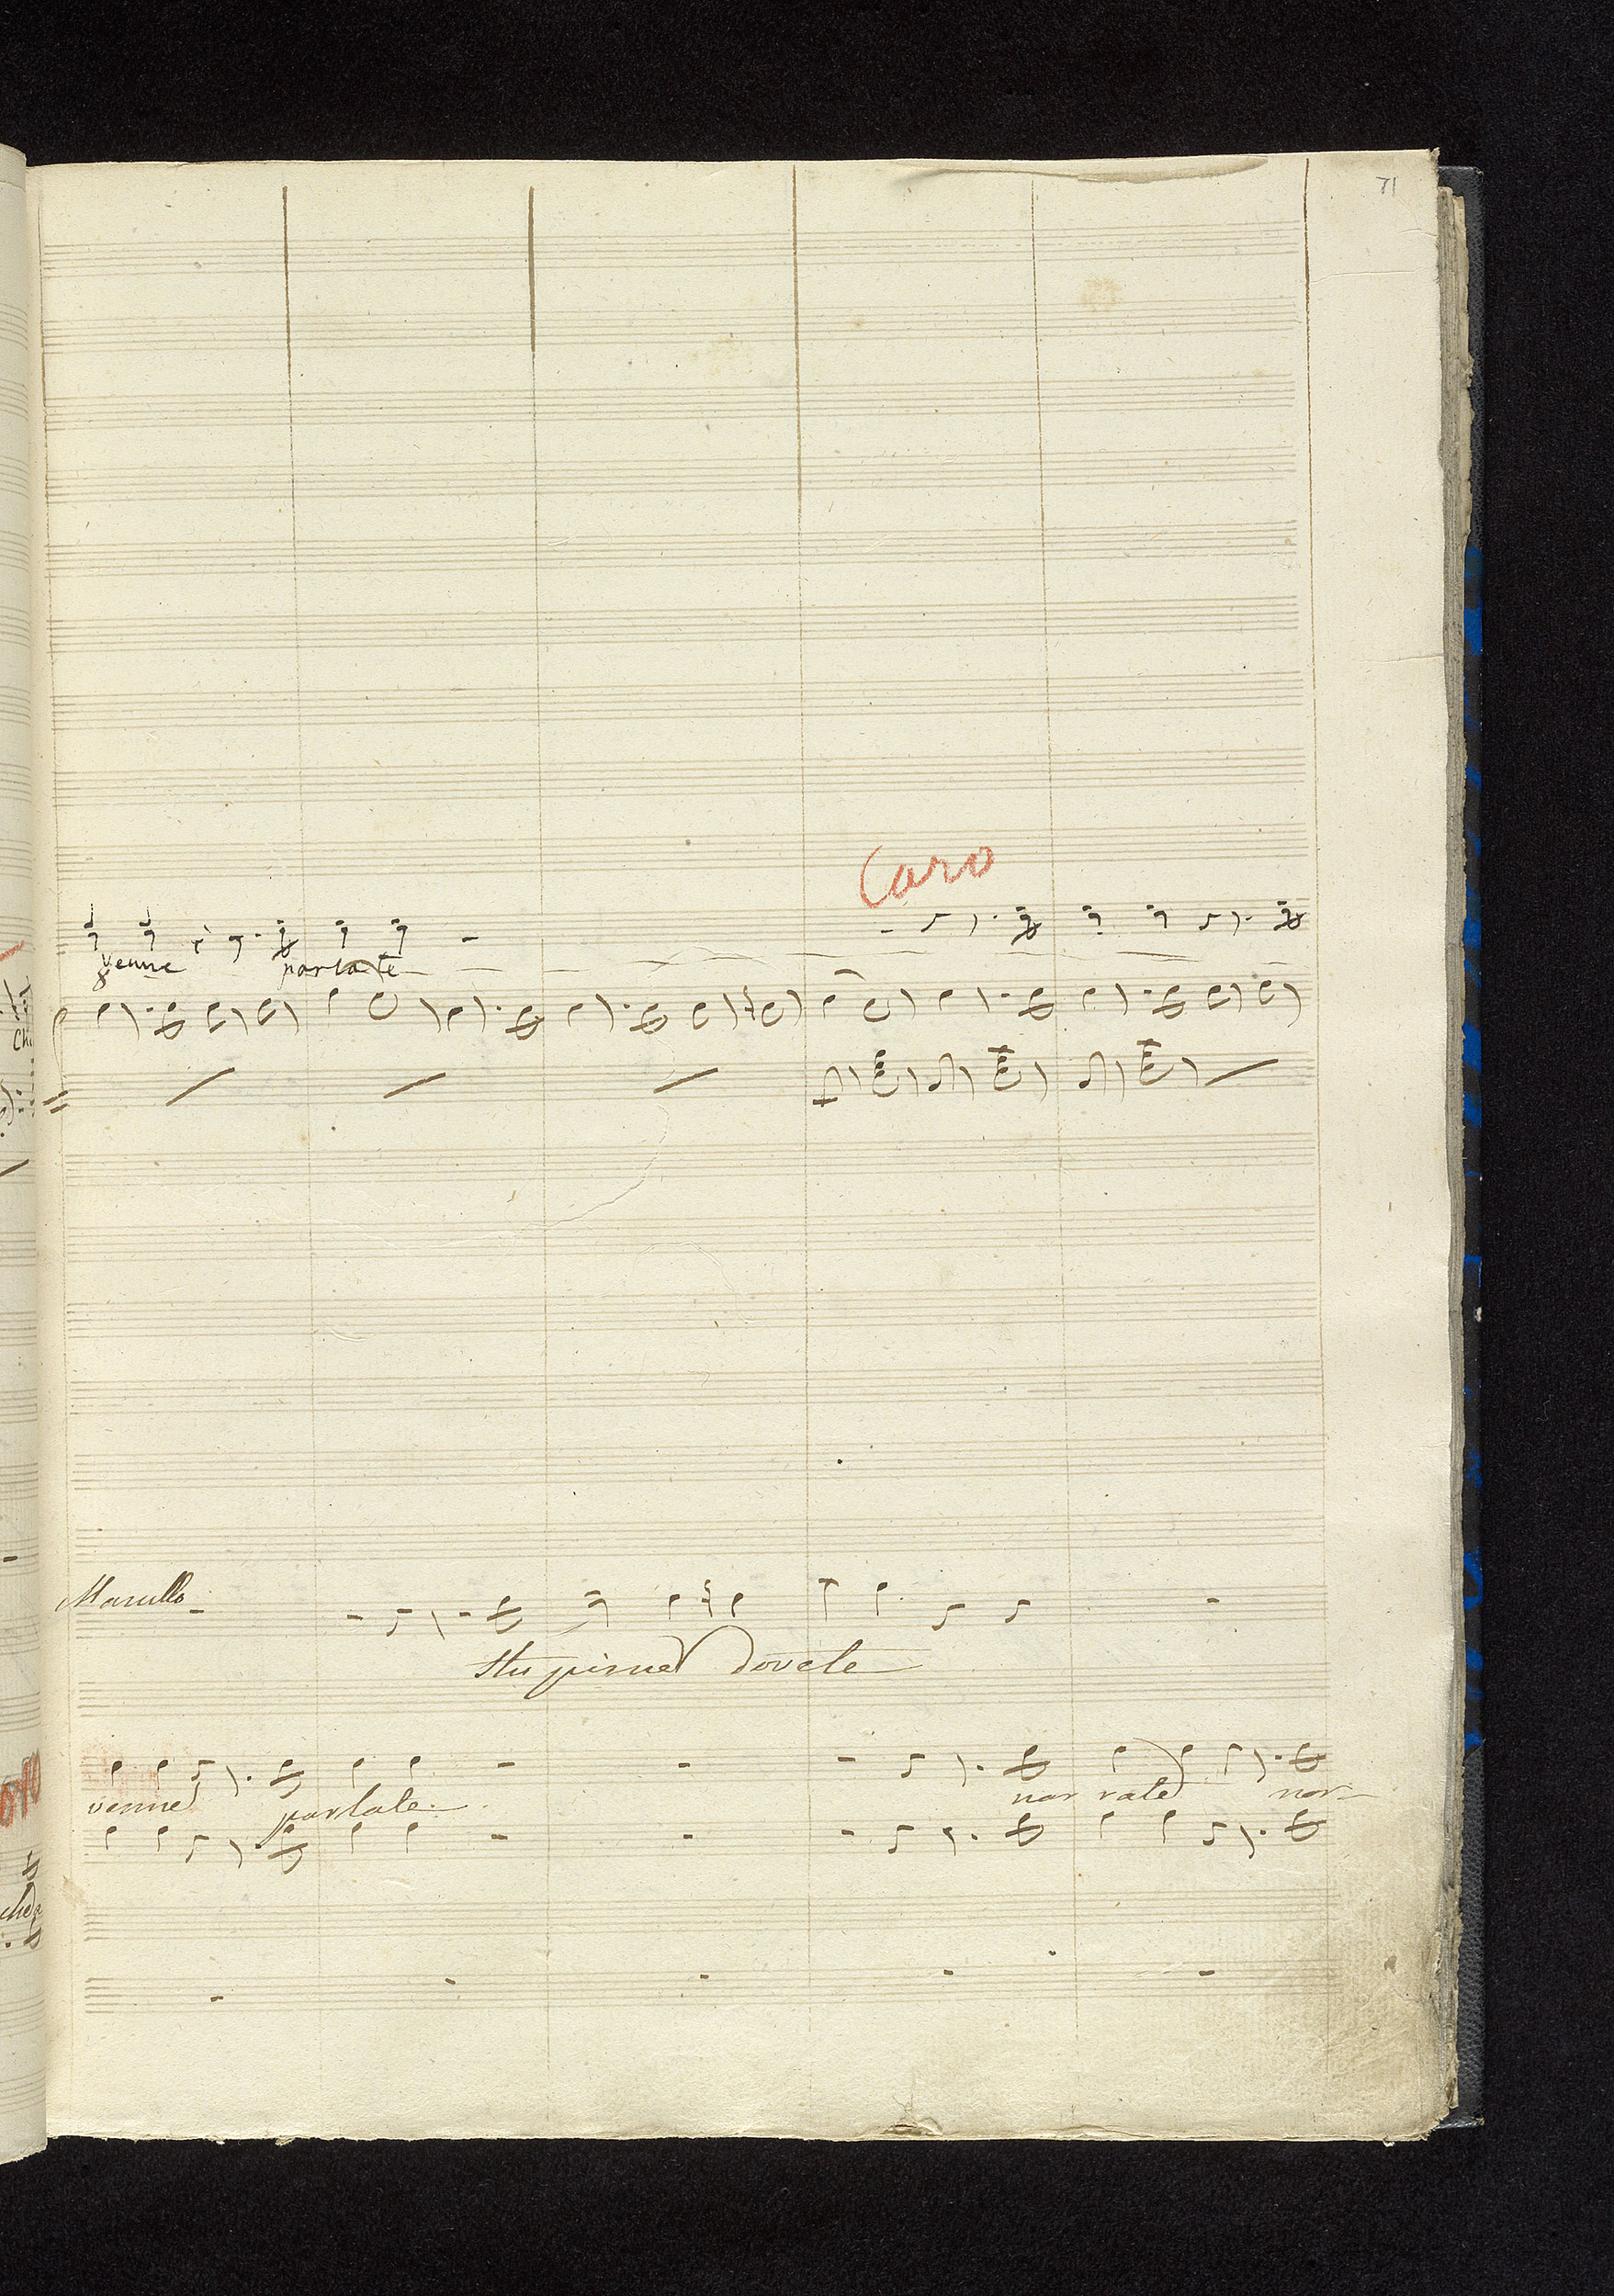 71
Caro
venne parlate
Marullo
Stupirne dovete
venne parlate. nar rate nar